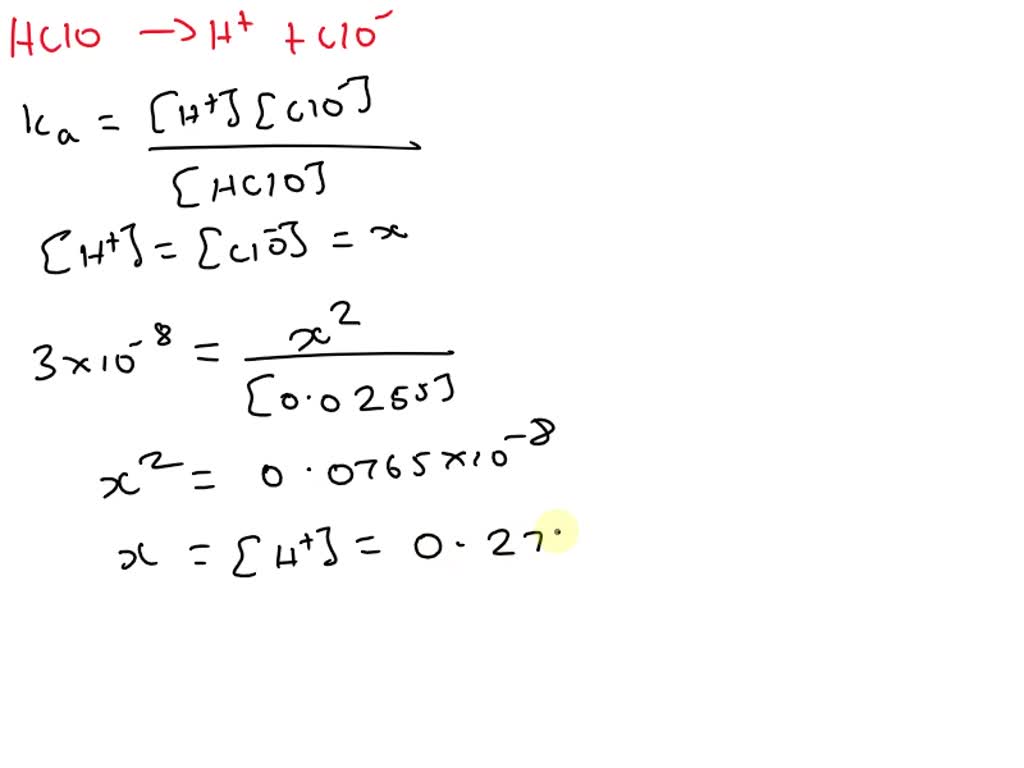 HClO → H⁺ + ClO⁻
Ka = [H⁺][ClO⁻]
[HClO]
[H⁺] = [ClO⁻] = x
3×10⁻⁸ = x²
[0.0255]
x² = 0.0765×10⁻⁸
x = [H⁺] = 0.27